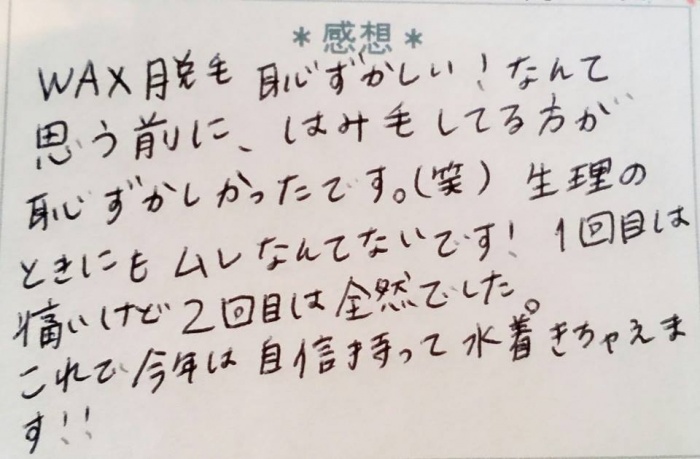 ＊感想＊
WAX脱毛 恥ずかしい！なんて
思う前に、はみ毛してる方が
恥ずかしかったです。(笑) 生理の
ときにも ムレなんてないです！ 1回目は
痛いけど 2回目は 全然でした。
これで 今年は 自信持って 水着きちゃえま
す!!